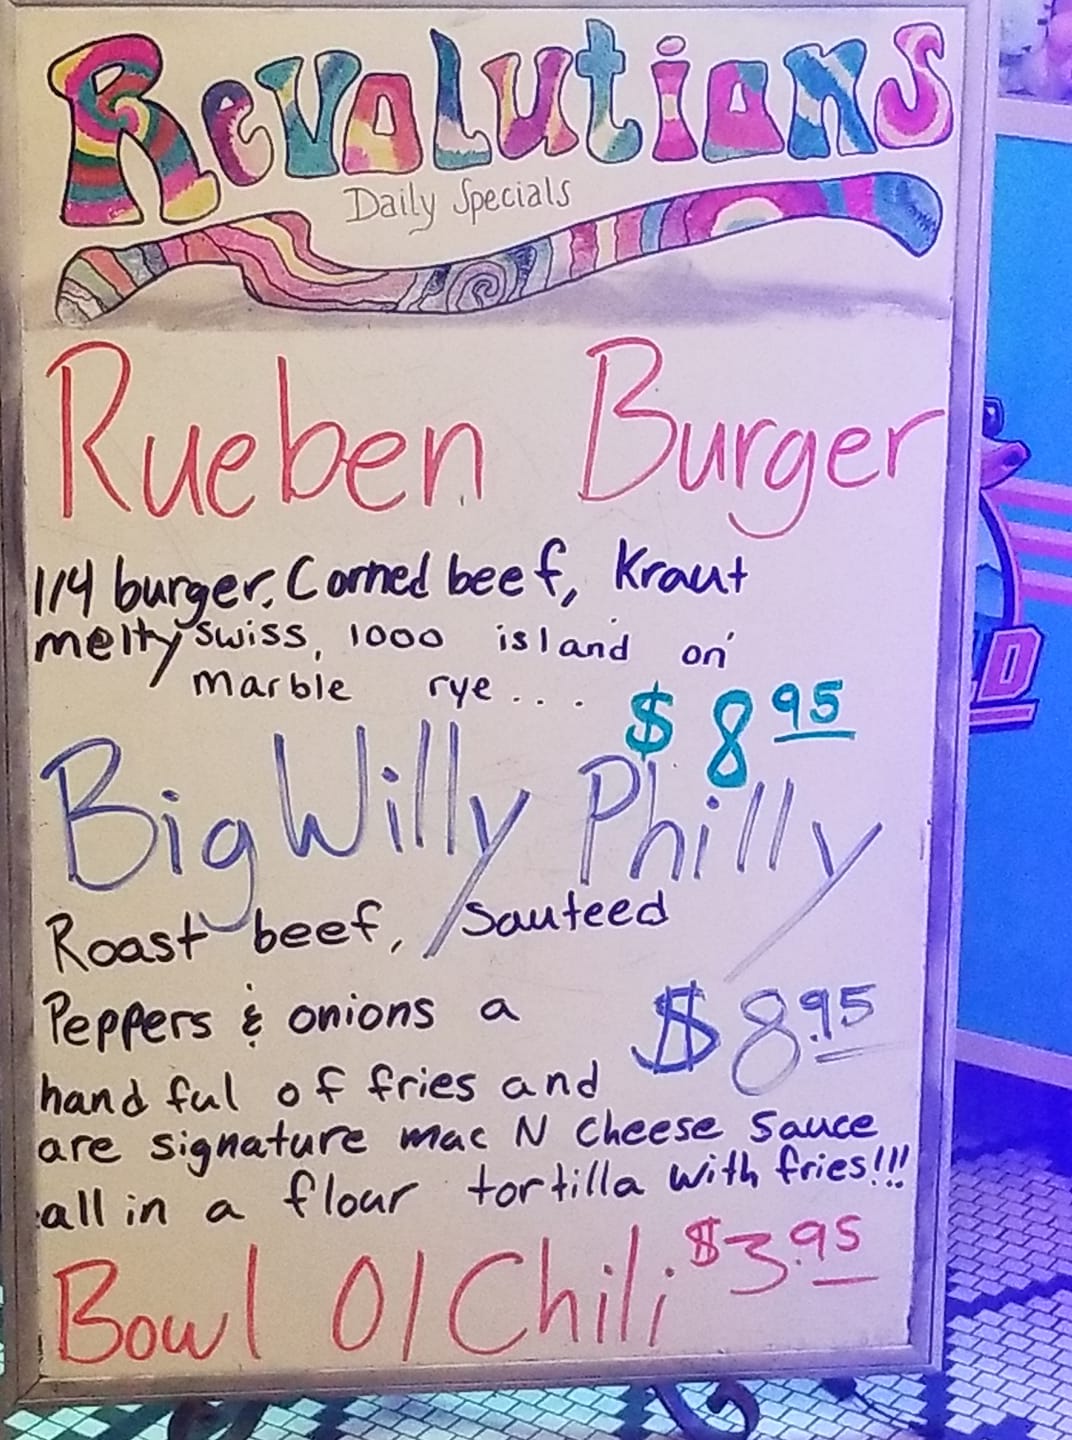 Revolutions
Daily Specials
Rueben Burger
1/4 burger, Corned beef, Kraut
melty swiss, 1000 island on
marble rye...
$8.95
Big Willy Philly
Roast beef, Sauteed
Peppers & onions a
$8.95
handful of fries and
are signature mac N cheese sauce
all in a flour tortilla with fries!!!
Bowl Ol Chili $3.95